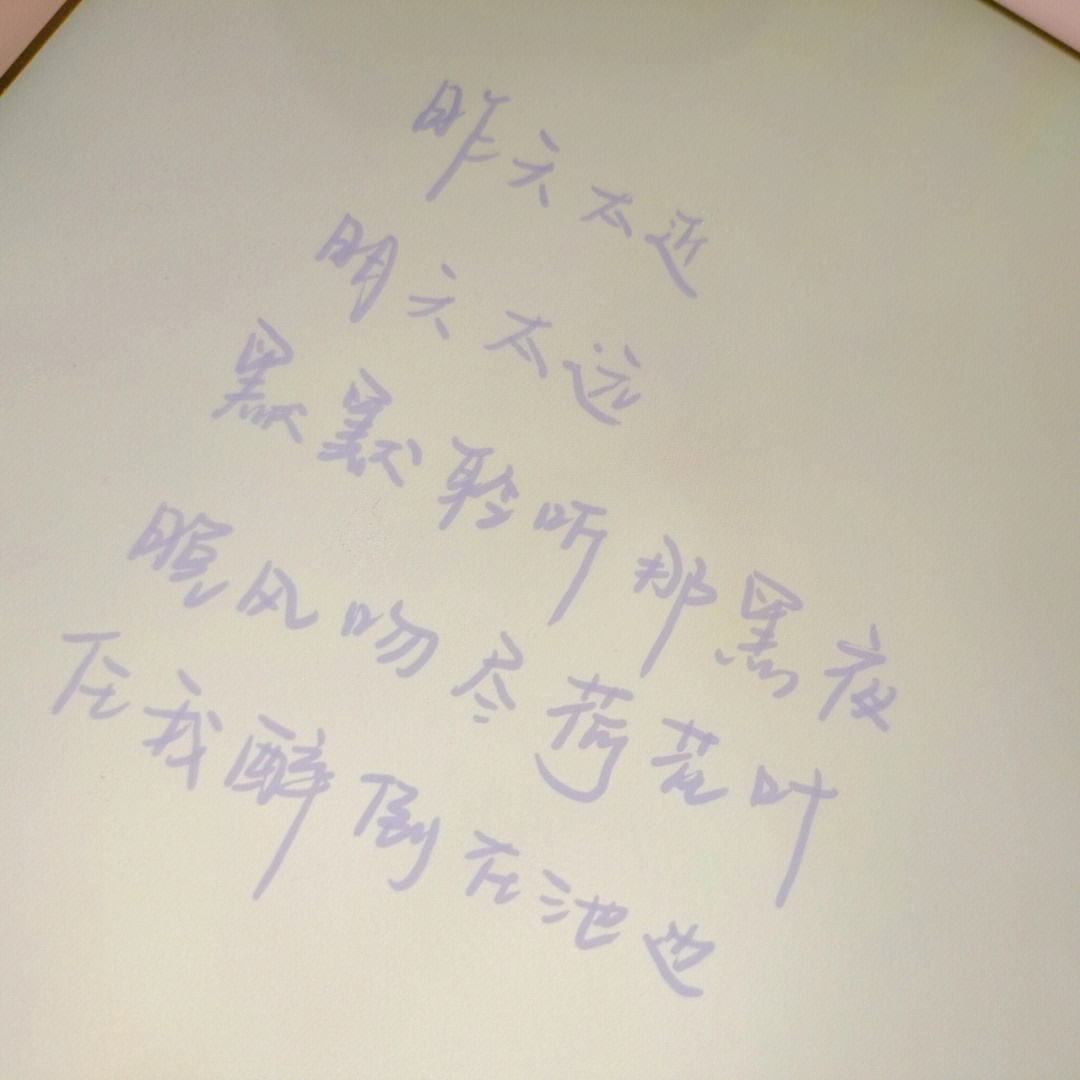 昨天太近
明天太远
默默聆听那黑夜
晚风吻尽荷花叶
任我醉倒在池边